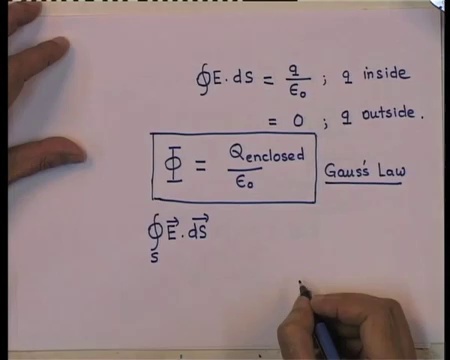 ∮E.ds = q/ε₀ ; q inside
= 0 ; q outside.
Φ = Qenclosed/ε₀ Gauss's Law
∮ₛ E⃗.dS⃗